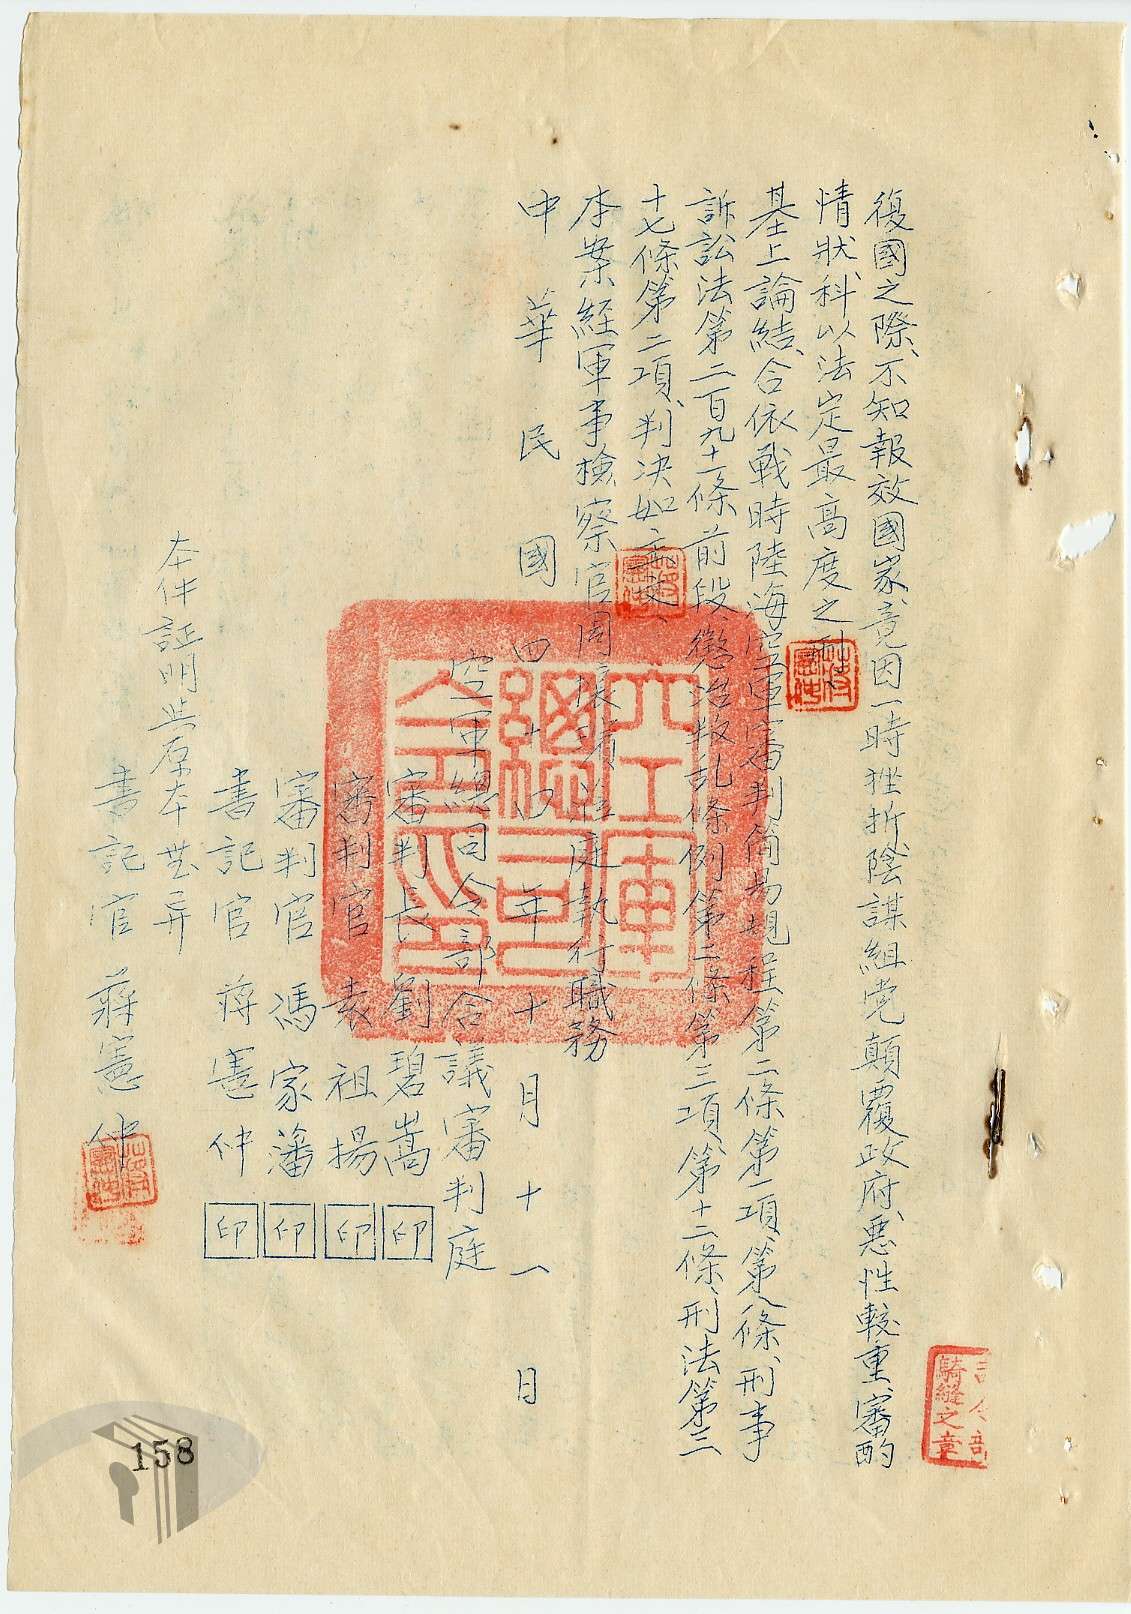 復國之際、不知報效國家、竟因一時挫折、陰謀組党顛覆政府、惡性較重、審酌
情狀、科以法定最高度之刑、
基上論結、合依戰時陸海空軍審判簡易規程第二條第一項、第八條、刑事
訴訟法第二百九十一條前段、懲治叛乱條例第二條第三項、第十二條、刑法第三
十七條第二項、判決如主文、
本案經軍事檢察官周 蒞庭執行職務
中華民國四十四年十月十一日
空軍總司令部合議審判庭
審判長 劉碧嵩 印
審判官 袁祖揚 印
審判官 馮家藩 印
書記官 蔣憲仲 印
本件証明與原本無異
書記官 蔣憲仲
空軍總司令印
騎縫之章
158